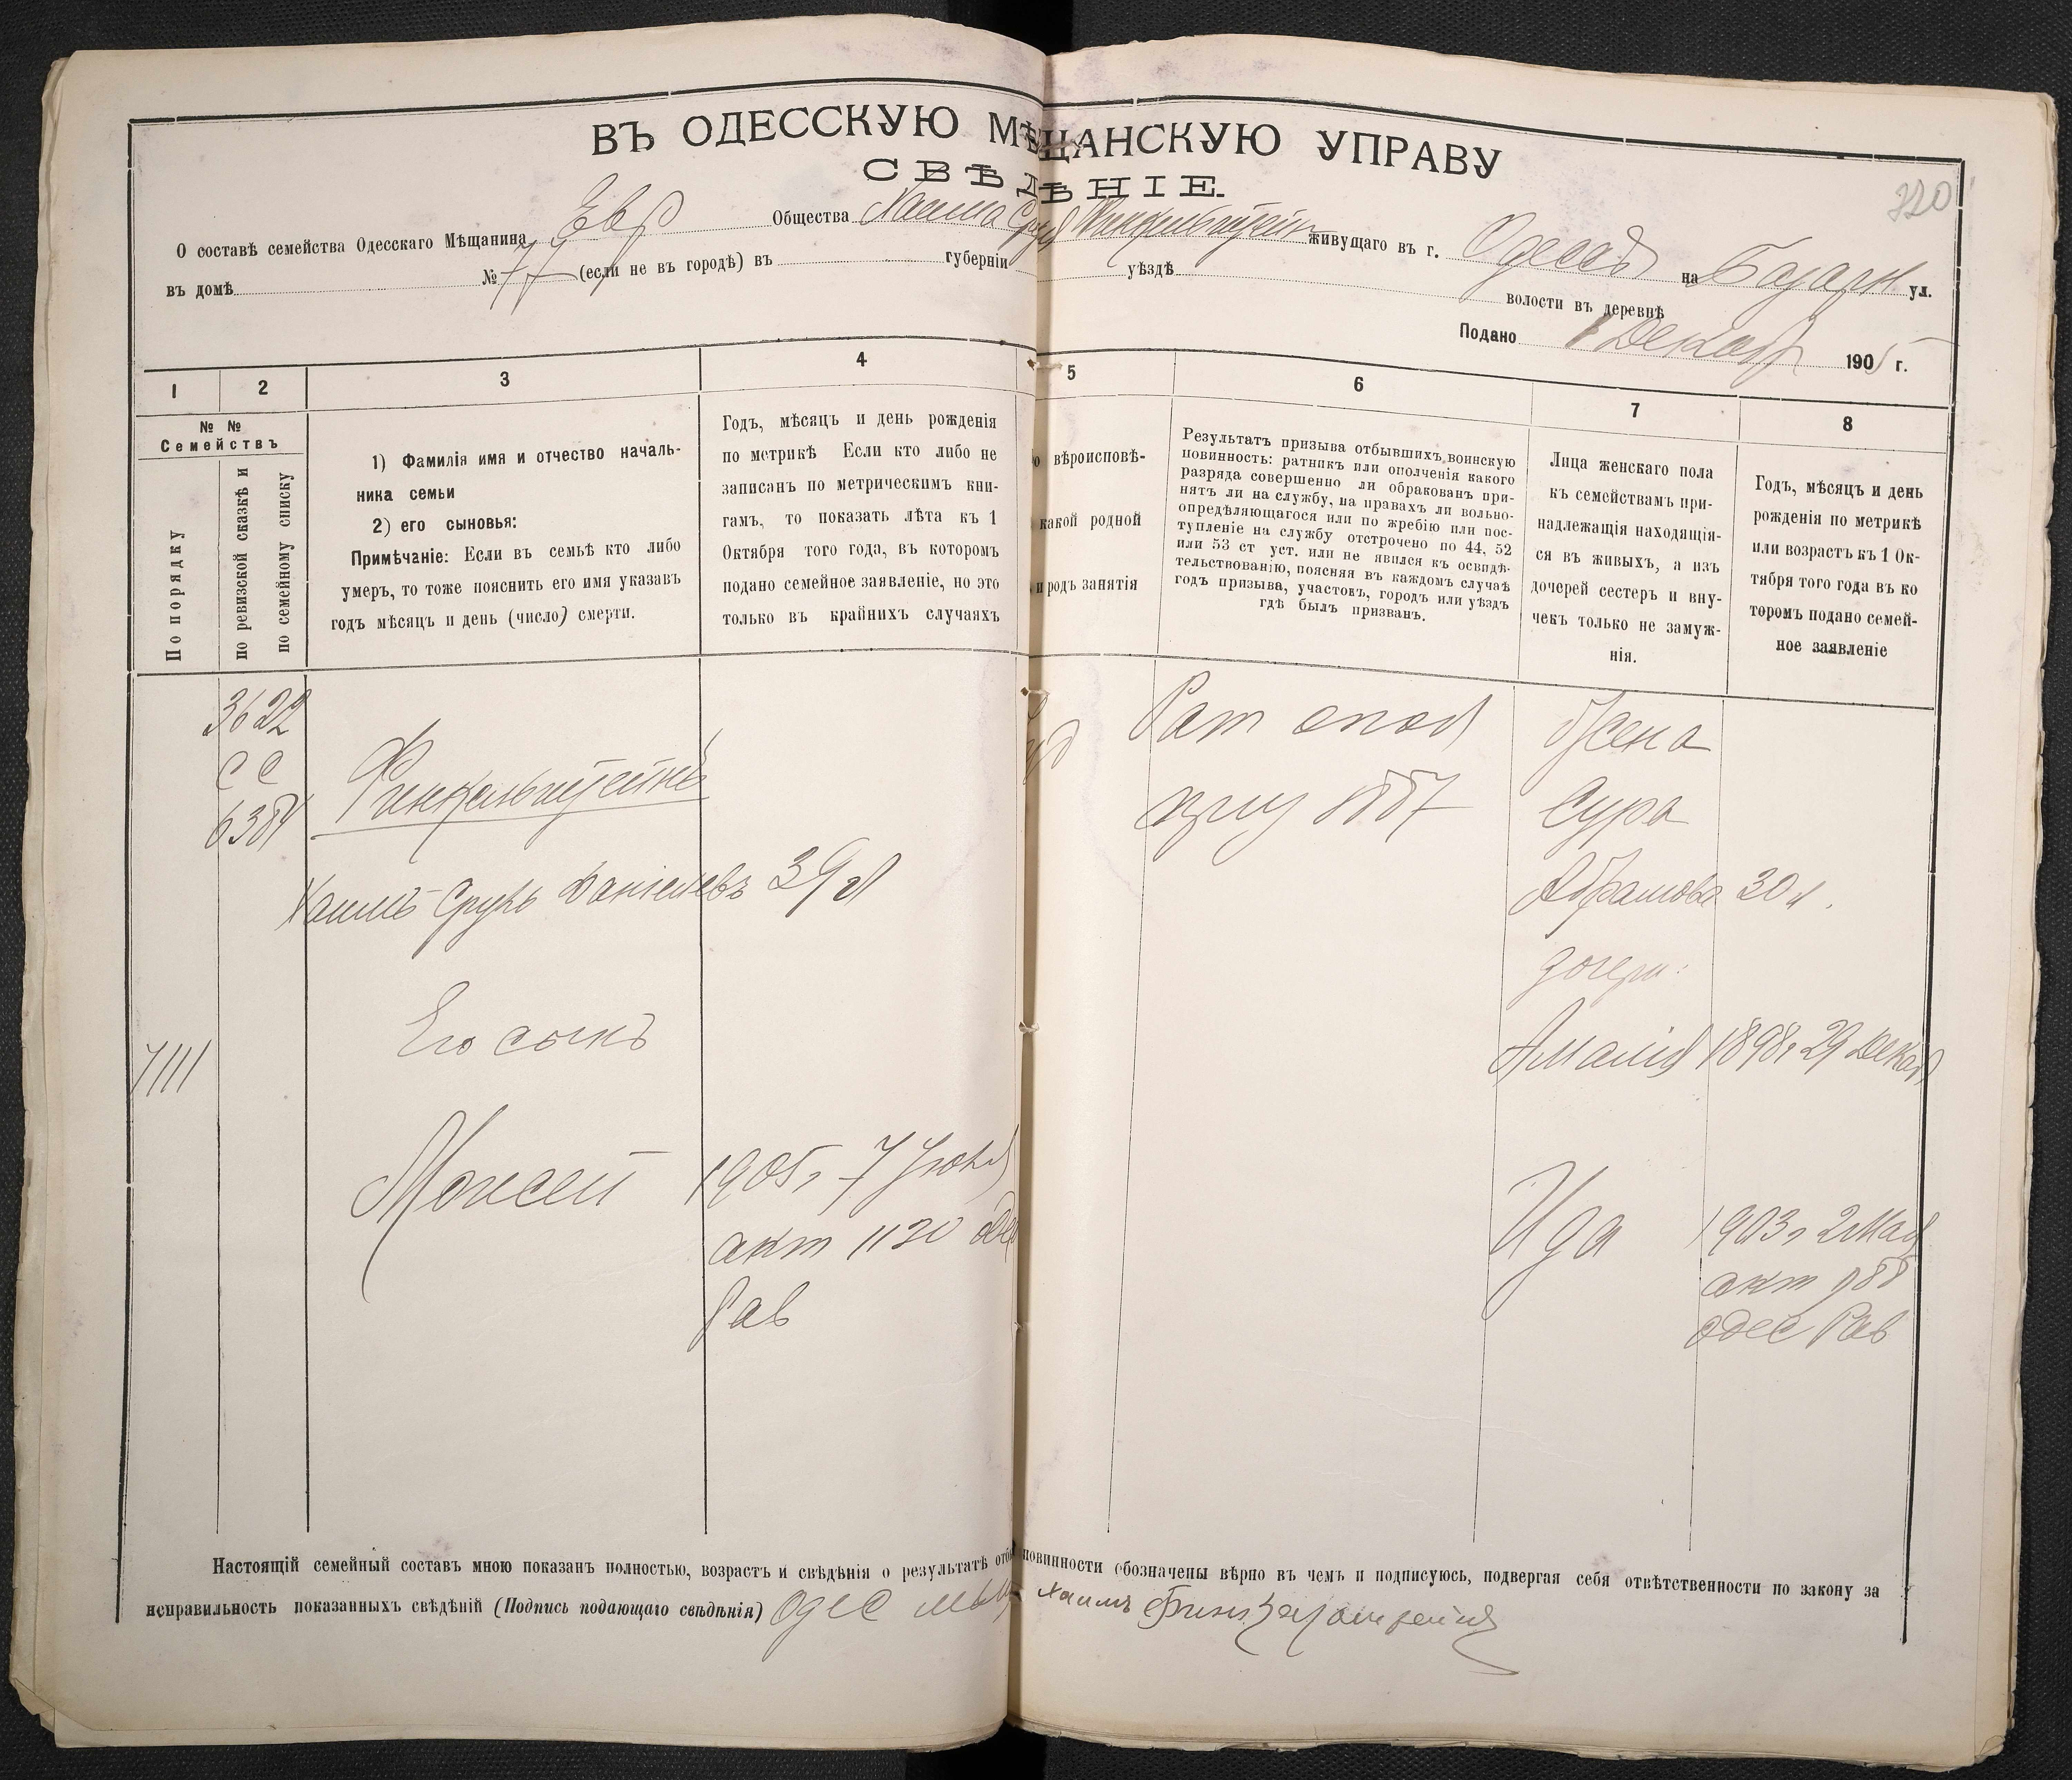 ВЪ ОДЕССКУЮ МѢЩАНСКУЮ УПРАВУ
СВѢДѢНІЕ.
320
О составѣ семейства Одесскаго Мѣщанина Евр Общества Хаима Сруля Финкельштейн живущаго въ г. Одессѣ на Базарн ул.
въ домѣ № 77 (если не въ городѣ) въ губерніи уѣздѣ волости въ деревнѣ
Подано 1 Декабр 1905 г.
1 2 3 4 5 6 7 8
№ №
Семействъ
По порядку
по ревизской сказкѣ и
по семейному списку
1) Фамилія имя и отчество началь-
ника семьи
2) его сыновья:
Примѣчаніе: Если въ семьѣ кто либо
умеръ, то тоже пояснить его имя указавъ
годъ мѣсяцъ и день (число) смерти.
Годъ, мѣсяцъ и день рожденія
по метрикѣ Если кто либо не
записанъ по метрическимъ кни-
гамъ, то показать лѣта къ 1
Октября того года, въ которомъ
подано семейное заявленіе, но это
только въ крайнихъ случаяхъ
вѣроисповѣ-
какой родной
и родъ занятія
Результатъ призыва отбывшихъ воинскую
повинность: ратникъ или ополченія какого
разряда совершенно ли обракованъ при-
нятъ ли на службу, на правахъ ли вольно-
опредѣляющагося или по жребію или пос-
тупленіе на службу отстрочено по 44, 52
или 53 ст уст. или не явился къ освидѣ-
тельствованію, поясняя въ каждомъ случаѣ
годъ призыва, участокъ, городъ или уѣздъ
гдѣ былъ призванъ.
Лица женскаго пола
къ семействамъ при-
надлежащія находящія-
ся въ живыхъ, а изъ
дочерей сестеръ и вну-
чекъ только не замуж-
нія.
Годъ, мѣсяцъ и день
рожденія по метрикѣ
или возрастъ къ 1 Ок-
тября того года въ ко
торомъ подано семей-
ное заявленіе
3622
СС
6384
Финкельштейнъ
Хаимъ Сруль Даніелевъ 39 л
Его сынъ
7111
Моисей 1905 г 7 Іюня
акт 1120 Одес
Рав
Рат опол
приз 1887
Жена
Сура
Абрамова 30 л.
дочери:
Амалія 1898 г 29 Декаб
Ида 1903 г 2 Мая
акт 988
Одес Рав
Настоящій семейный составъ мною показанъ полностью, возрастъ и свѣдѣнія о результатѣ отбы повинности обозначены вѣрно въ чемъ и подписуюсь, подвергая себя отвѣтственности по закону за
неправильность показанныхъ свѣдѣній (Подпись подающаго свѣдѣнія) Одес мѣщ Хаимъ Финкельштейнъ